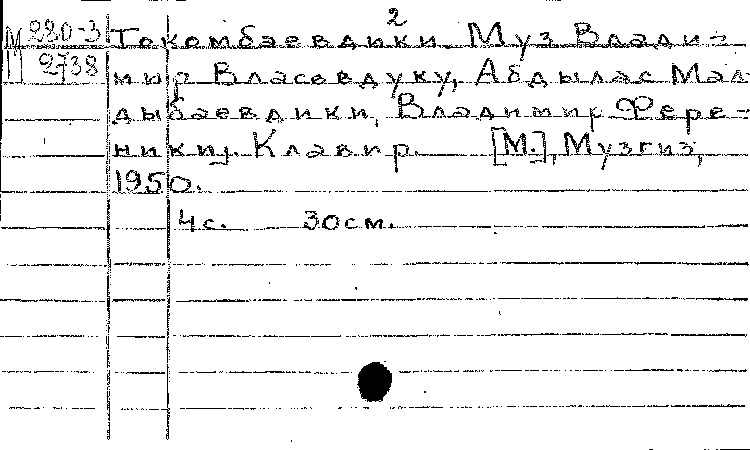 2
М 280-3 Токомбаевдики. Муз Влади-
2738 мир Власовдуку, Абдылас Мал
дыбаевдики, Владимир Фере-
ники]. Клавир. [М.], Музгиз,
1950.
4 с. 30 см.